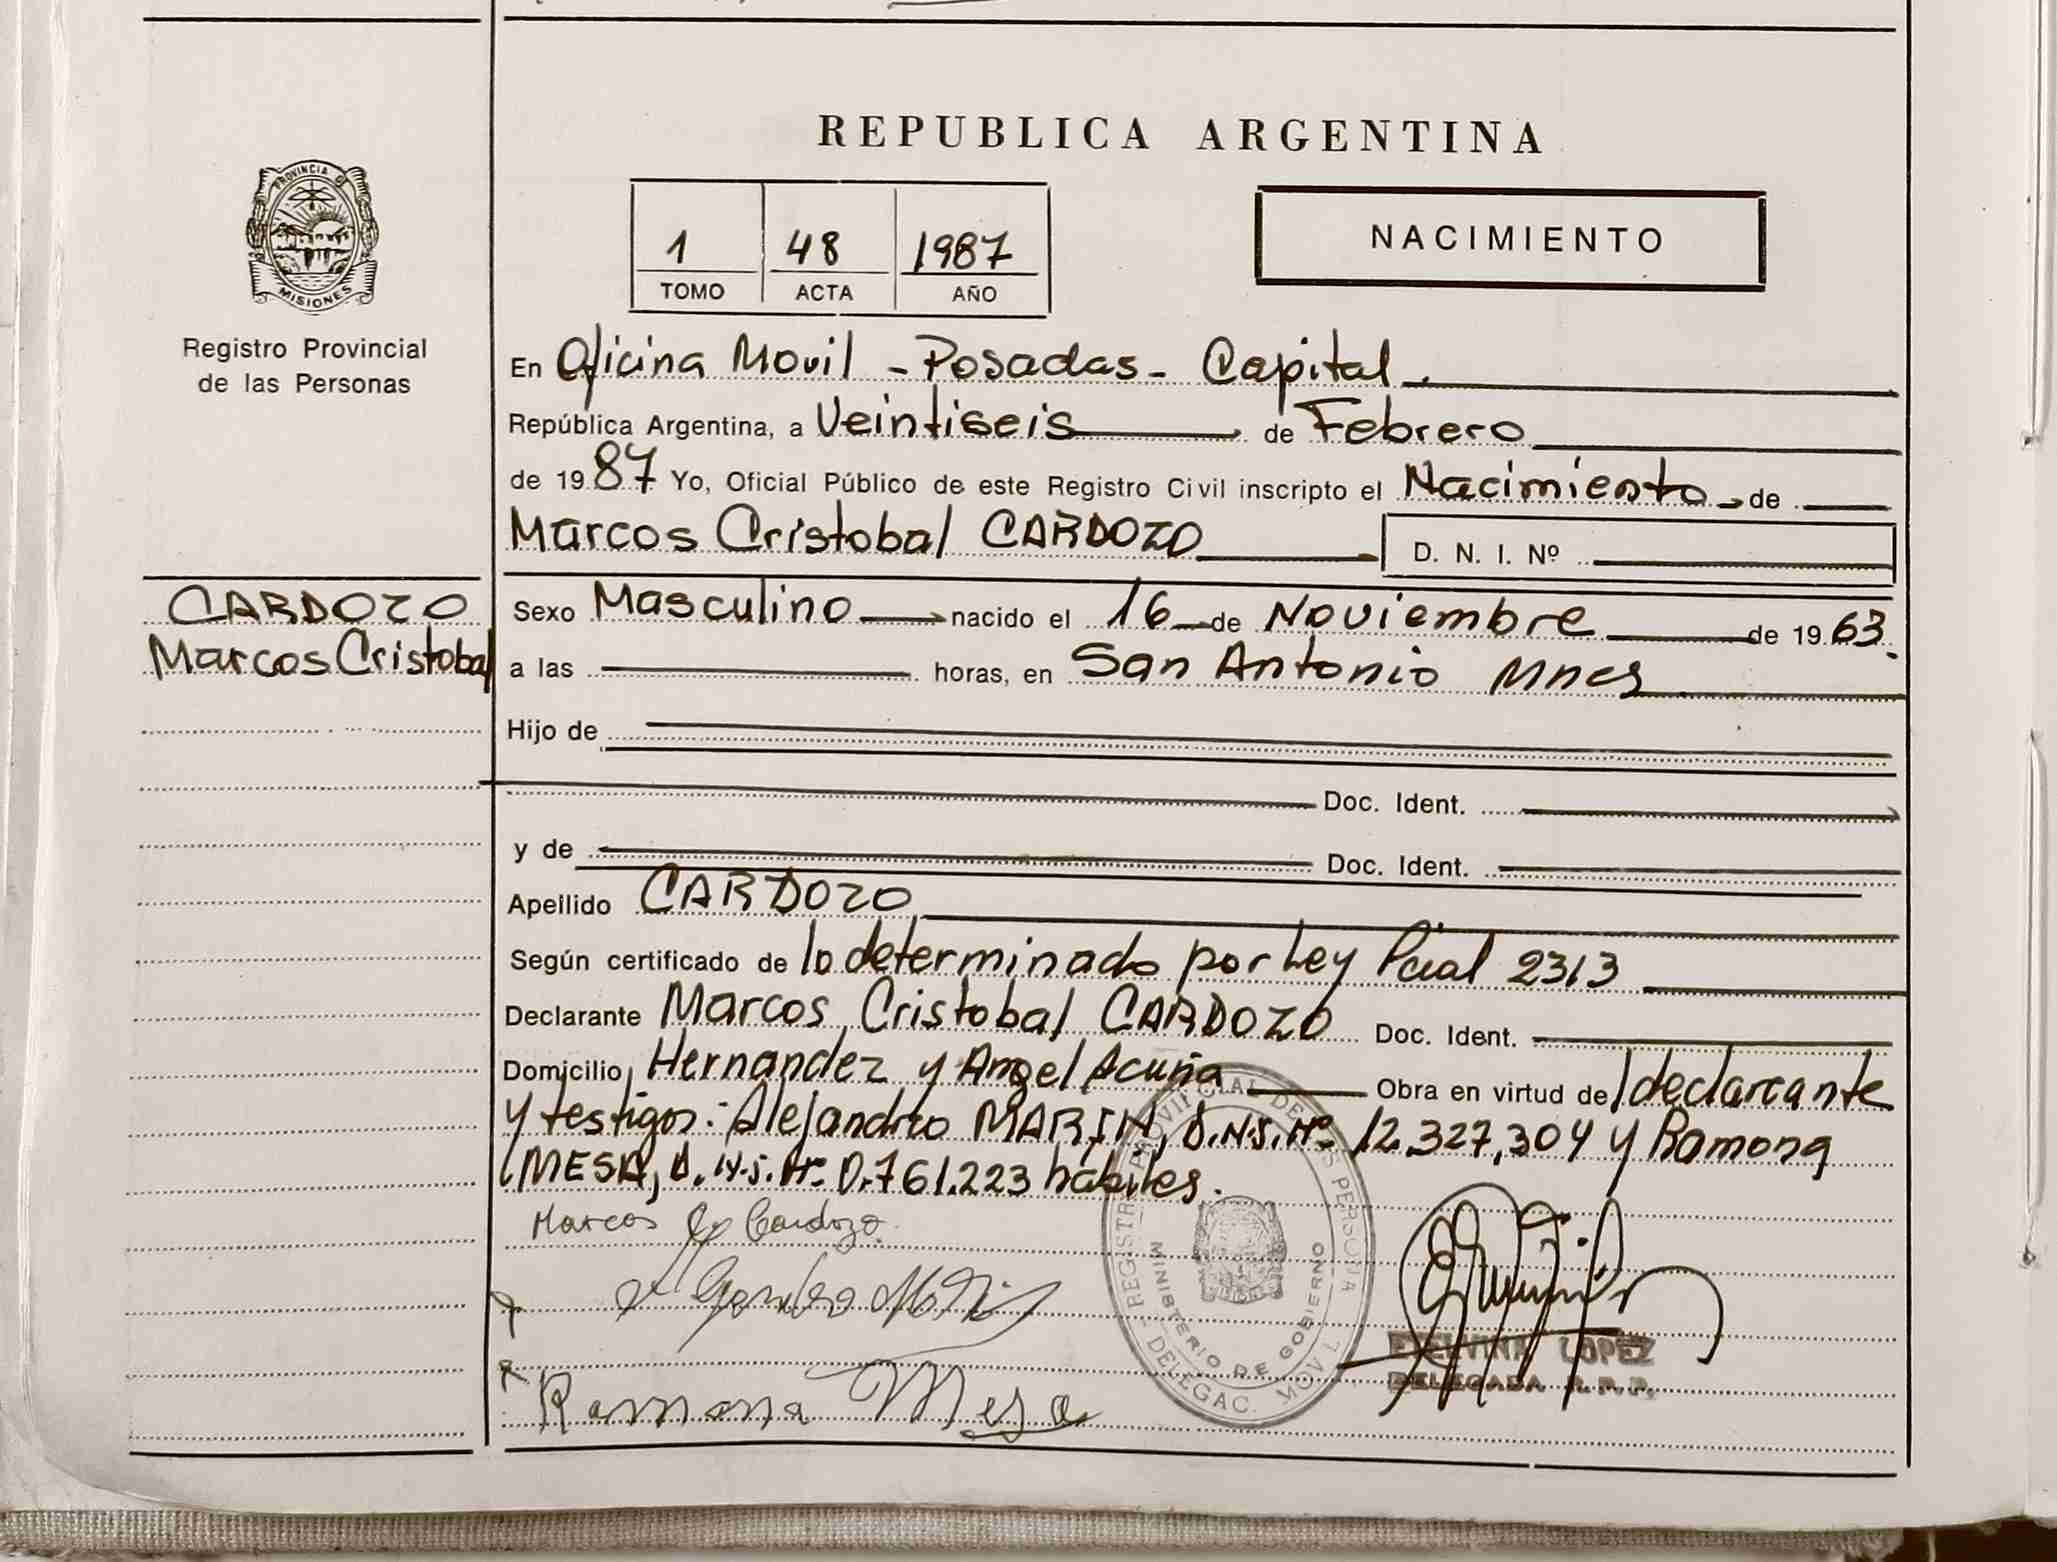 REPUBLICA ARGENTINA
PROVINCIA D
MISIONES
Registro Provincial
de las Personas
1 48 1987
TOMO ACTA AÑO
NACIMIENTO
En Oficina Movil - Posadas - Capital.
República Argentina, a Veintiseis de Febrero
de 1987 Yo, Oficial Público de este Registro Civil inscripto el Nacimiento de
Marcos Cristobal CARDOZO D. N. I. Nº
CARDOZO
Marcos Cristobal
Sexo Masculino nacido el 16 de Noviembre de 1963.
a las horas, en San Antonio Mnes
Hijo de
Doc. Ident.
y de Doc. Ident.
Apellido CARDOZO
Según certificado de lo determinado por Ley Pcial 2313
Declarante Marcos Cristobal CARDOZO Doc. Ident.
Domicilio Hernandez y Angel Acuña Obra en virtud de declarante
y testigos: Alejandro MARIN, D.N.I. Nº 12.327,304 y Ramona
MESA, D.N.I. Nº 0.761.223 habiles.
Marcos C Cardozo.
Ramona Mesa
REGISTRO PROVINCIAL DE LAS PERSONA
MINISTERIO DE GOBIERNO
DELEGAC. MOVIL
ETELVINA LOPEZ
DELEGADA R.P.P.